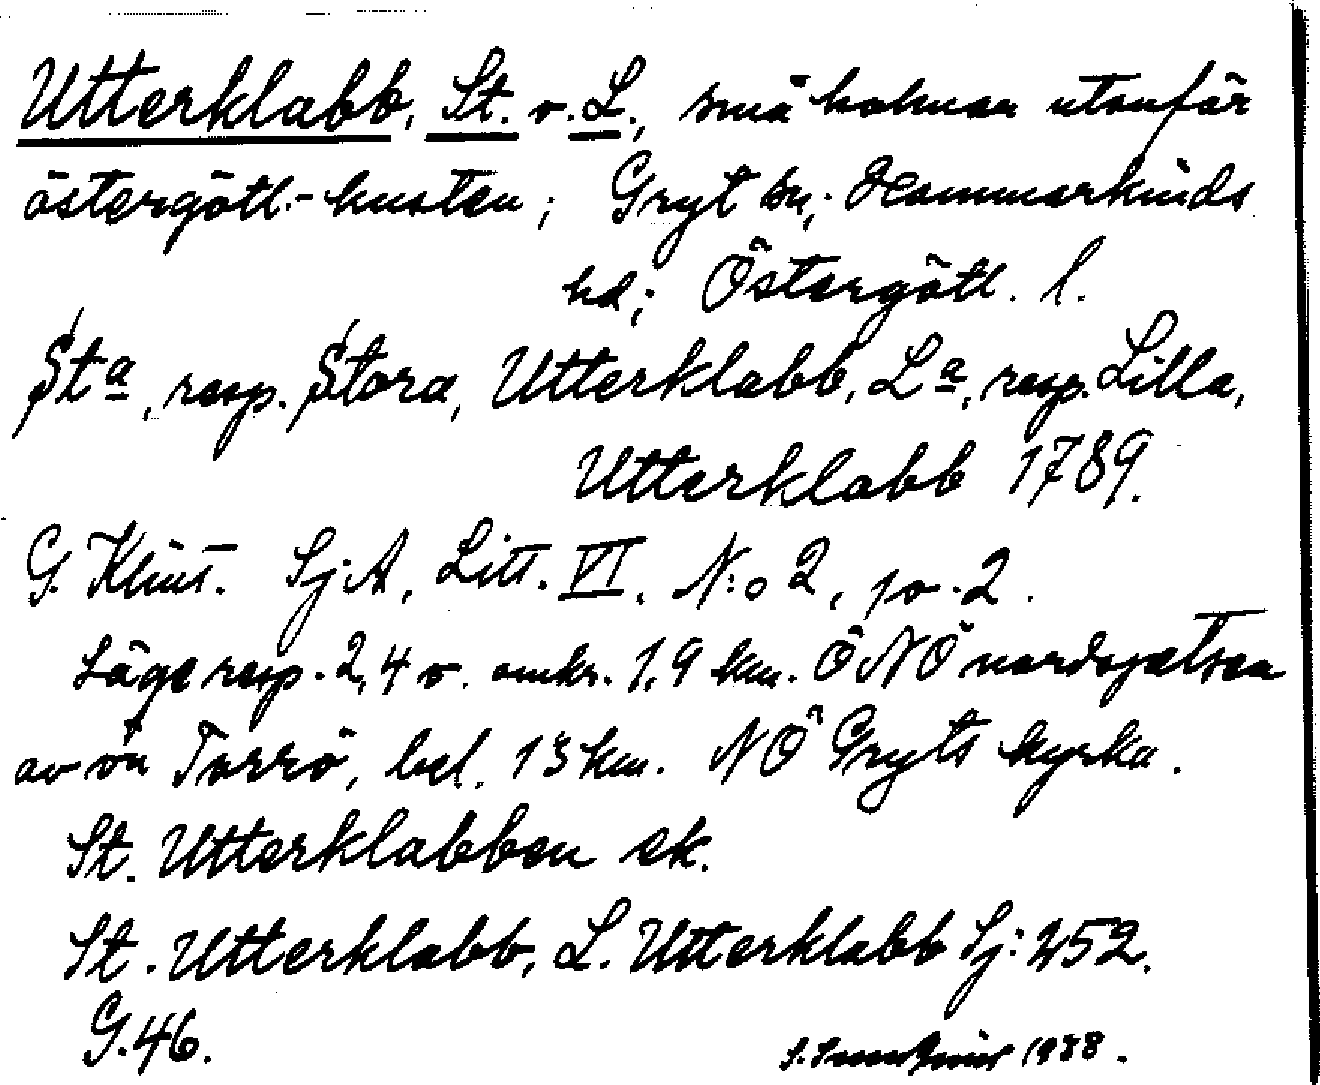 Utterklabb, St. o. L., små holmar utanför
östergötl.-kusten; Gryt sn; Hammarkinds
hd; Östergötl. l.
Sta, resp. Stora, Utterklabb, La, resp. Lilla,
Utterklabb 1789.
G. Klint. Sj.A, Litt. VI, N:o 2, p. 2.
Läge resp. 2,4 o. omkr. 1,9 km. ÖNÖ nordspetsen
av ön Torrö, bel. 13 km. NÖ Gryts kyrka.
St. Utterklabben ek.
St. Utterklabb, L. Utterklabb Sj: 252.
G.46.
1988.